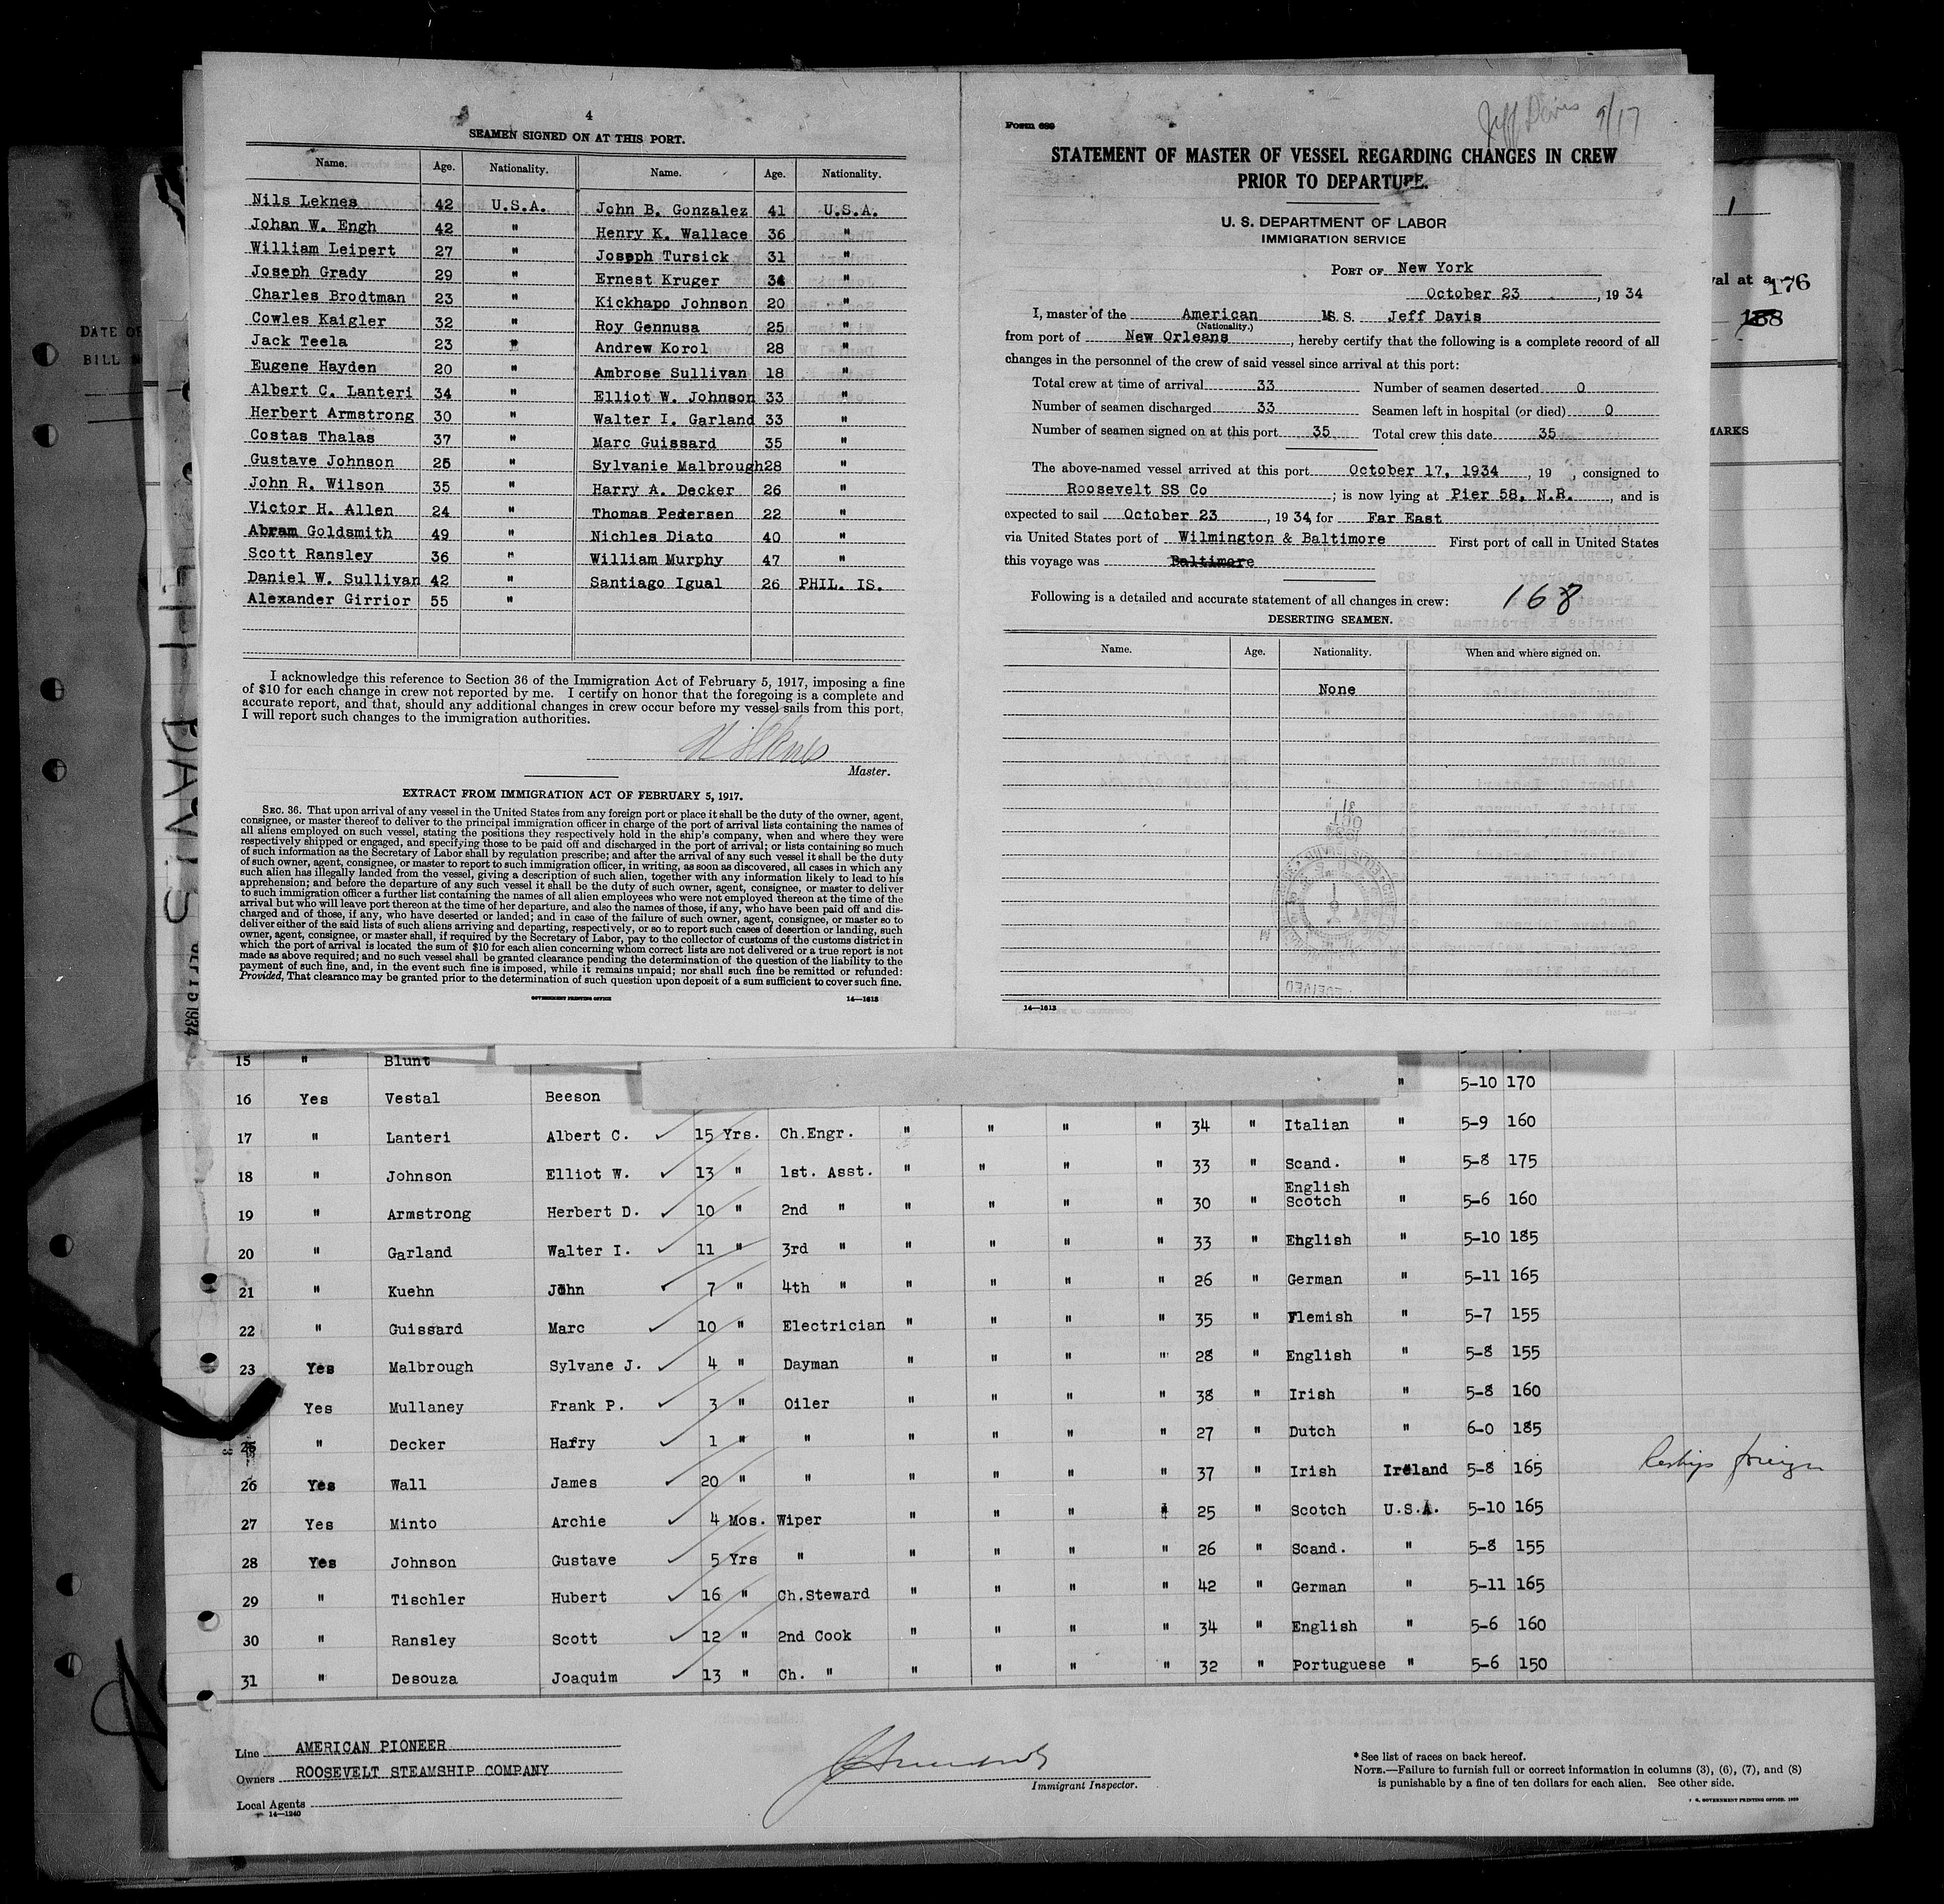 4
SEAMEN SIGNED ON AT THIS PORT.
Name. Age. Nationality. Name. Age. Nationality.
Nils Leknes 42 U.S.A. John B. Gonzalez 41 U.S.A.
Johan W. Engh 42 " Henry K. Wallace 36 "
William Leipert 27 " Joseph Tursick 31 "
Joseph Grady 29 " Ernest Kruger 34 "
Charles Brodtman 23 " Kickhapo Johnson 20 "
Cowles Kaigler 32 " Roy Gennusa 25 "
Jack Teela 23 " Andrew Korol 28 "
Eugene Hayden 20 " Ambrose Sullivan 18 "
Albert C. Lanteri 34 " Elliot W. Johnson 33 "
Herbert Armstrong 30 " Walter I. Garland 33 "
Costas Thalas 37 " Marc Guissard 35 "
Gustave Johnson 26 " Sylvanie Malbrough 28 "
John R. Wilson 35 " Harry A. Decker 26 "
Victor H. Allen 24 " Thomas Pedersen 22 "
Abram Goldsmith 49 " Nichles Diato 40 "
Scott Ransley 36 " William Murphy 47 "
Daniel W. Sullivan 42 " Santiago Igual 26 PHIL. IS.
Alexander Girrior 55 "
I acknowledge this reference to Section 36 of the Immigration Act of February 5, 1917, imposing a fine
of $10 for each change in crew not reported by me. I certify on honor that the foregoing is a complete and
accurate report, and that, should any additional changes in crew occur before my vessel sails from this port,
I will report such changes to the immigration authorities.
N Leknes
Master.
EXTRACT FROM IMMIGRATION ACT OF FEBRUARY 5, 1917.
SEC. 36. That upon arrival of any vessel in the United States from any foreign port or place it shall be the duty of the owner, agent,
consignee, or master thereof to deliver to the principal immigration officer in charge of the port of arrival lists containing the names of
all aliens employed on such vessel, stating the positions they respectively hold in the ship's company, when and where they were
respectively shipped or engaged, and specifying those to be paid off and discharged in the port of arrival; or lists containing so much
of such information as the Secretary of Labor shall by regulation prescribe; and after the arrival of any such vessel it shall be the duty
of such owner, agent, consignee, or master to report to such immigration officer, in writing, as soon as discovered, all cases in which any
such alien has illegally landed from the vessel, giving a description of such alien, together with any information likely to lead to his
apprehension; and before the departure of any such vessel it shall be the duty of such owner, agent, consignee, or master to deliver
to such immigration officer a further list containing the names of all alien employees who were not employed thereon at the time of the
arrival but who will leave port thereon at the time of her departure, and also the names of those, if any, who have been paid off and dis-
charged and of those, if any, who have deserted or landed; and in case of the failure of such owner, agent, consignee, or master so to
deliver either of the said lists of such aliens arriving and departing, respectively, or so to report such cases of desertion or landing, such
owner, agent, consignee, or master shall, if required by the Secretary of Labor, pay to the collector of customs of the customs district in
which the port of arrival is located the sum of $10 for each alien concerning whom correct lists are not delivered or a true report is not
made as above required; and no such vessel shall be granted clearance pending the determination of the question of the liability to the
payment of such fine, and, in the event such fine is imposed, while it remains unpaid; nor shall such fine be remitted or refunded:
Provided, That clearance may be granted prior to the determination of such question upon deposit of a sum sufficient to cover such fine.
GOVERNMENT PRINTING OFFICE 14—1613
Jeff Davis 9/17
Form 689
STATEMENT OF MASTER OF VESSEL REGARDING CHANGES IN CREW
PRIOR TO DEPARTURE.
U. S. DEPARTMENT OF LABOR
IMMIGRATION SERVICE
PORT OF New York
October 23, 1934
I, master of the American S. S. Jeff Davis
(Nationality.)
from port of New Orleans, hereby certify that the following is a complete record of all
changes in the personnel of the crew of said vessel since arrival at this port:
Total crew at time of arrival 33 Number of seamen deserted 0
Number of seamen discharged 33 Seamen left in hospital (or died) 0
Number of seamen signed on at this port 35 Total crew this date 35
The above-named vessel arrived at this port October 17, 1934, 19 , consigned to
Roosevelt SS Co ; is now lying at Pier 58, N.R., and is
expected to sail October 23, 1934, for Far East
via United States port of Wilmington & Baltimore First port of call in United States
this voyage was Baltimore
Following is a detailed and accurate statement of all changes in crew: 168
DESERTING SEAMEN.
Name. Age. Nationality. When and where signed on.
None
14—1613
DATE OF
BILL
1
val at a
176
188
MARKS
DAVIS
1934
15 " Blunt
16 Yes Vestal Beeson " 5-10 170
17 " Lanteri Albert C. 15 Yrs. Ch.Engr. " " " " 34 " Italian " 5-9 160
18 " Johnson Elliot W. 13 " 1st. Asst. " " " " 33 " Scand. " 5-8 175
19 " Armstrong Herbert D. 10 " 2nd " " " " " 30 " English Scotch " 5-6 160
20 " Garland Walter I. 11 " 3rd " " " " " 33 " English " 5-10 185
21 " Kuehn John 7 " 4th " " " " " 26 " German " 5-11 165
22 " Guissard Marc 10 " Electrician " " " " 35 " Flemish " 5-7 155
23 Yes Malbrough Sylvane J. 4 " Dayman " " " " 28 " English " 5-8 155
Yes Mullaney Frank P. 3 " Oiler " " " " 38 " Irish " 5-8 160
25 " Decker Harry 1 " " " " " " 27 " Dutch " 6-0 185
26 Yes Wall James 20 " " " " " " 37 " Irish Ireland 5-8 165
27 Yes Minto Archie 4 Mos. Wiper " " " " 25 " Scotch U.S.A. 5-10 165
28 Yes Johnson Gustave 5 Yrs " " " " " 26 " Scand. " 5-8 155
29 " Tischler Hubert 16 " Ch.Steward " " " " 42 " German " 5-11 165
30 " Ransley Scott 12 " 2nd Cook " " " " 34 " English " 5-6 160
31 " Desouza Joaquim 13 " Ch. " " " " " 32 " Portuguese " 5-6 150
Line AMERICAN PIONEER
Owners ROOSEVELT STEAMSHIP COMPANY
Local Agents
14—1240
Immigrant Inspector.
*See list of races on back hereof.
NOTE.—Failure to furnish full or correct information in columns (3), (6), (7), and (8)
is punishable by a fine of ten dollars for each alien. See other side.
U. S. GOVERNMENT PRINTING OFFICE: 1929